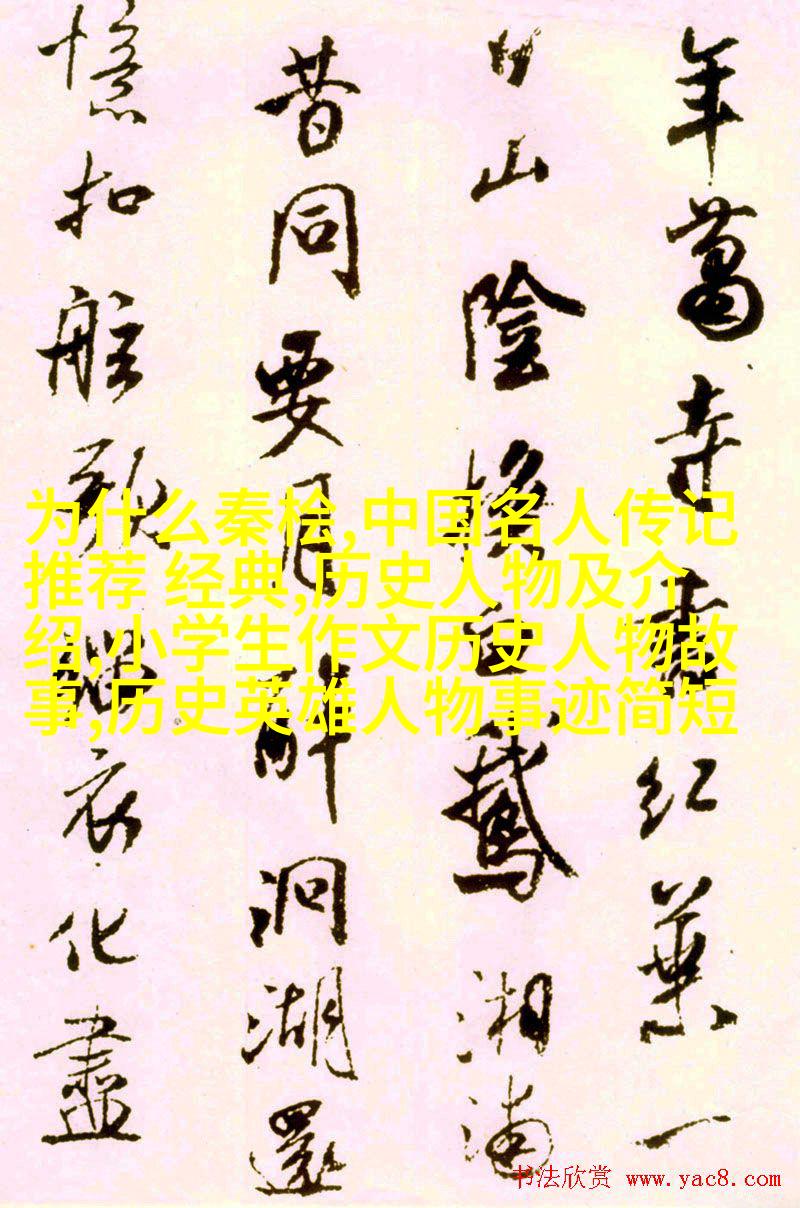 年蕭寺書红葉一
日山陰換白鵝湘浦
昔同要月醉洞湖還
憶扣舷歌緇衣化盡
为什么秦桧,中国名人传记
推荐 经典,历史人物及介
绍,小学生作文历史人物故
事,历史英雄人物事迹简短
书法欣赏 www.yac8.com